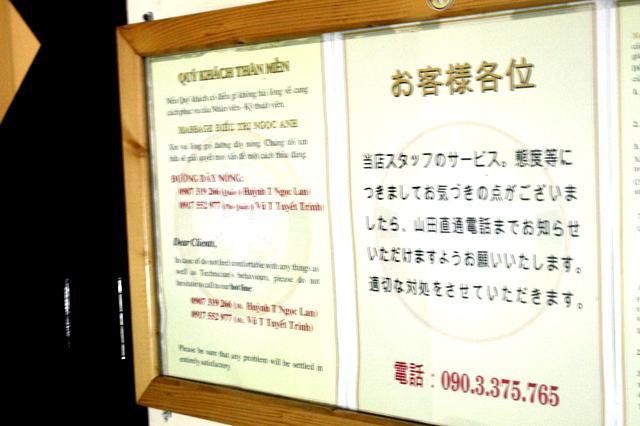 QUÝ KHÁCH THÂN MẾN
Nếu Quý khách có điều gì không hài lòng về cung
cách phục vụ của Nhân viên - Kỹ thuật viên.
MASSAGE ĐIỀU TRỊ NGỌC ANH
Xin vui lòng gọi đường dây nóng. Chúng tôi xin
hứa sẽ giải quyết mọi vấn đề một cách thỏa đáng.
ĐƯỜNG DÂY NÓNG:
0907 319 266 (Quản lý Huỳnh T Ngọc Lan)
0917 552 977 (Phó Quản lý Vũ T Tuyết Trinh)
Dear Clients,
In case of do not feel comfortable with any things as
well as Technician's behaviours, please do not
hesitate to call to our hot line:
0907 319 266 (Ms. Huỳnh T Ngọc Lan)
0917 552 977 (Ms. Vũ T Tuyết Trinh)
Please be sure that any problem will be settled in
entirely satisfactory.
お客様各位
当店スタッフのサービス。態度等に
つきましてお気づきの点がございま
したら、山田直通電話までお知らせ
いただけますようお願いいたします。
適切な対処をさせていただきます。
電話：090.3.375.765